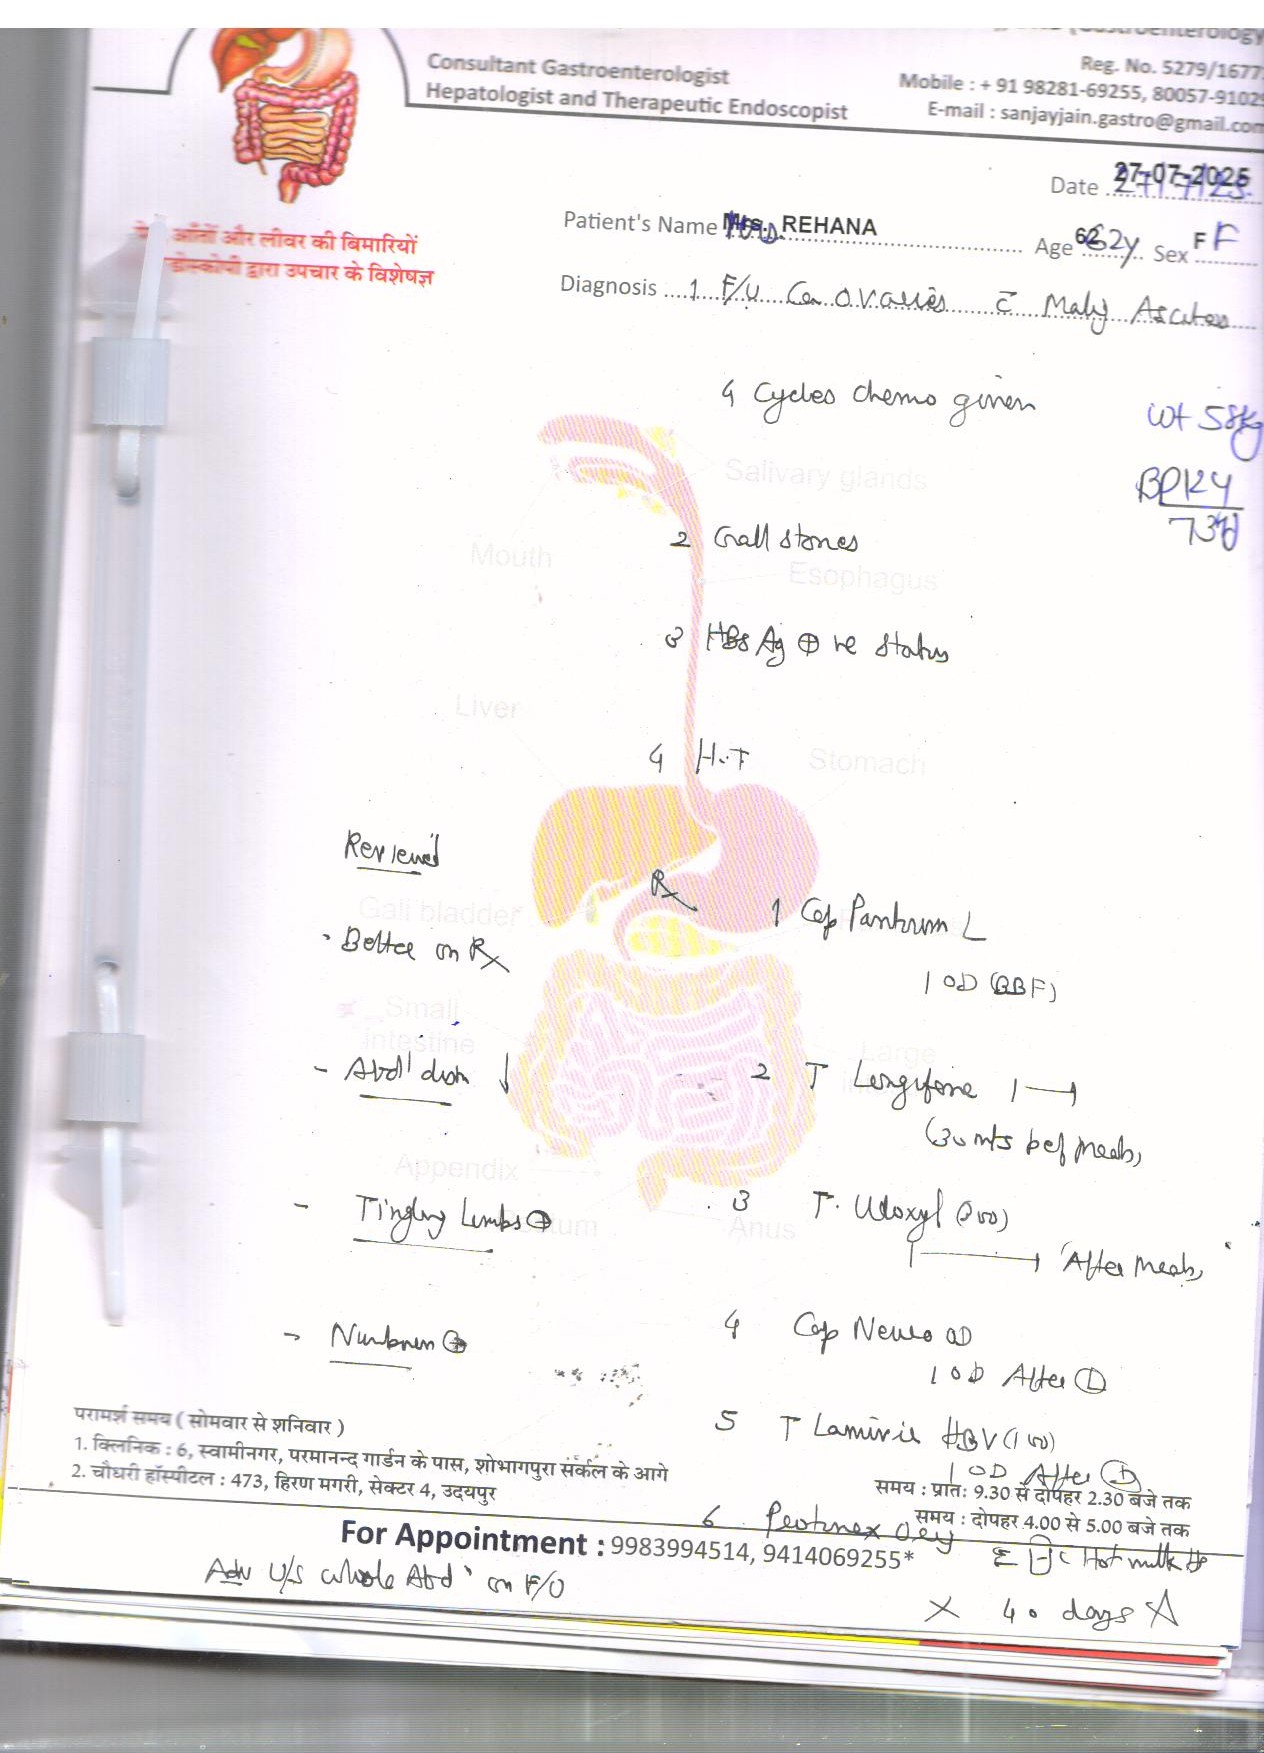 (Gastroenterology
Consultant Gastroenterologist
Hepatologist and Therapeutic Endoscopist
Reg. No. 5279/1677
Mobile : + 91 98281-69255, 80057-9102
E-mail : sanjayjain.gastro@gmail.com
Date 27-07-2025 27/7/25
आँतों और लीवर की बिमारियों
डोस्कोपी द्वारा उपचार के विशेषज्ञ
Patient's Name Mrs. REHANA Age 62y Sex F F
Diagnosis 1 F/U Ca Ovaries c̄ Malg Ascites
4 Cycles chemo given
Wt 58kg
BP 124
Salivary glands
2 Gall stones
Mouth
Esophagus
3 HBs Ag ⊕ve Status
Liver
4 H.T
Stomach
Reviewed
Rx 1 Cap Pantrum L
Gall bladder
· Better on Rx
1 OD (BBF)
Small
intestine
Large
- Abd' distn ↓
2 T Longifene 1—|
(30 mts bef meals,
Appendix
- Tingling Limbs ⊕
3 T. Udoxyl (300)
Anus
|—| After meals,
- Numbness ⊕
4 Cap Neuro OD
1 OD After Ⓛ
परामर्श समय ( सोमवार से शनिवार )
5 T Lamivir HBV (100)
1 OD After Ⓓ
1. क्लिनिक : 6, स्वामीनगर, परमानन्द गार्डन के पास, शोभागपुरा सर्कल के आगे समय : प्रातः 9.30 से दोपहर 2.30 बजे तक
2. चौधरी हॉस्पीटल : 473, हिरण मगरी, सेक्टर 4, उदयपुर समय : दोपहर 4.00 से 5.00 बजे तक
6 Protinex
For Appointment : 9983994514, 9414069255*
Hot milk
Adv U/S whole Abd' on F/U
X 40 days